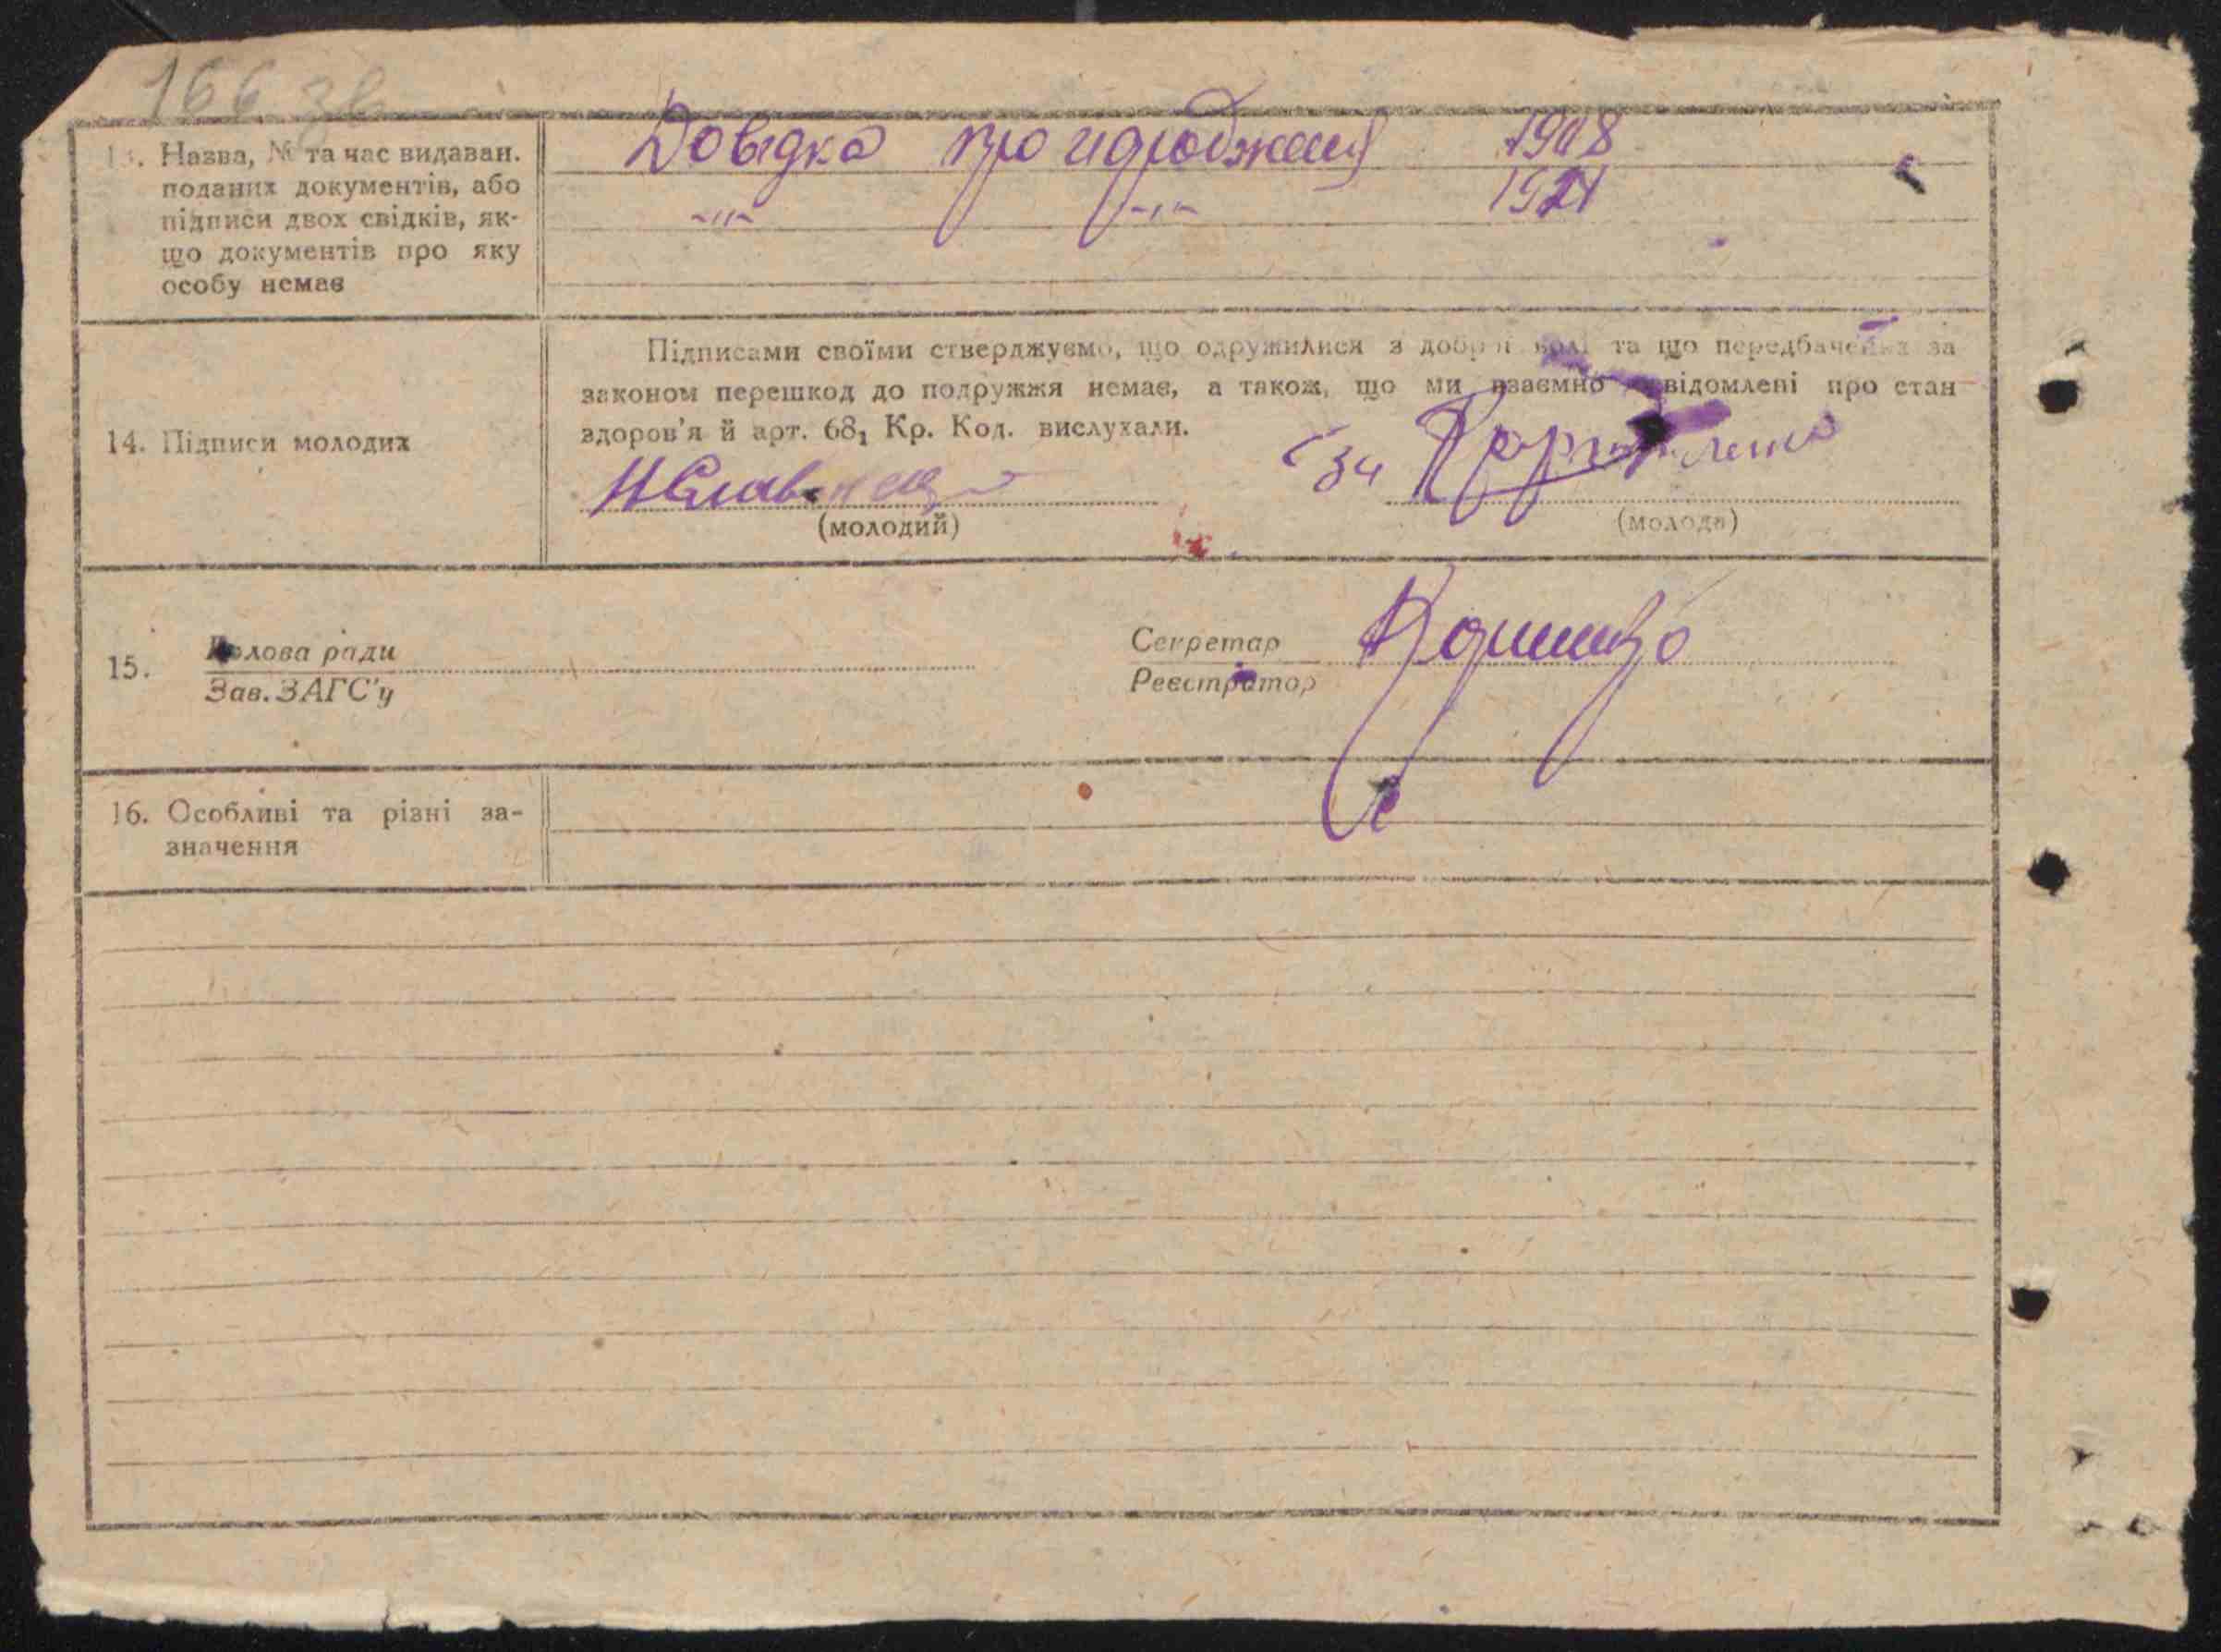 166 зв
13. Назва, № та час видаван.
поданих документів, або
підписи двох свідків, як-
що документів про яку
особу немає
Довідка про
1908
-"- -"- 1921
14. Підписи молодих
Підписами своїми стверджуємо, що одружилися з доброї волі та що передбачених за
законом перешкод до подружжя немає, а також, що ми взаємно повідомлені про стан
здоров'я й арт. 68₁ Кр. Код. вислухали.
за
(молодий)
(молода)
15.
Голова ради
Зав. ЗАГС'у
Секретар
Реєстратор
16. Особливі та різні за-
значення